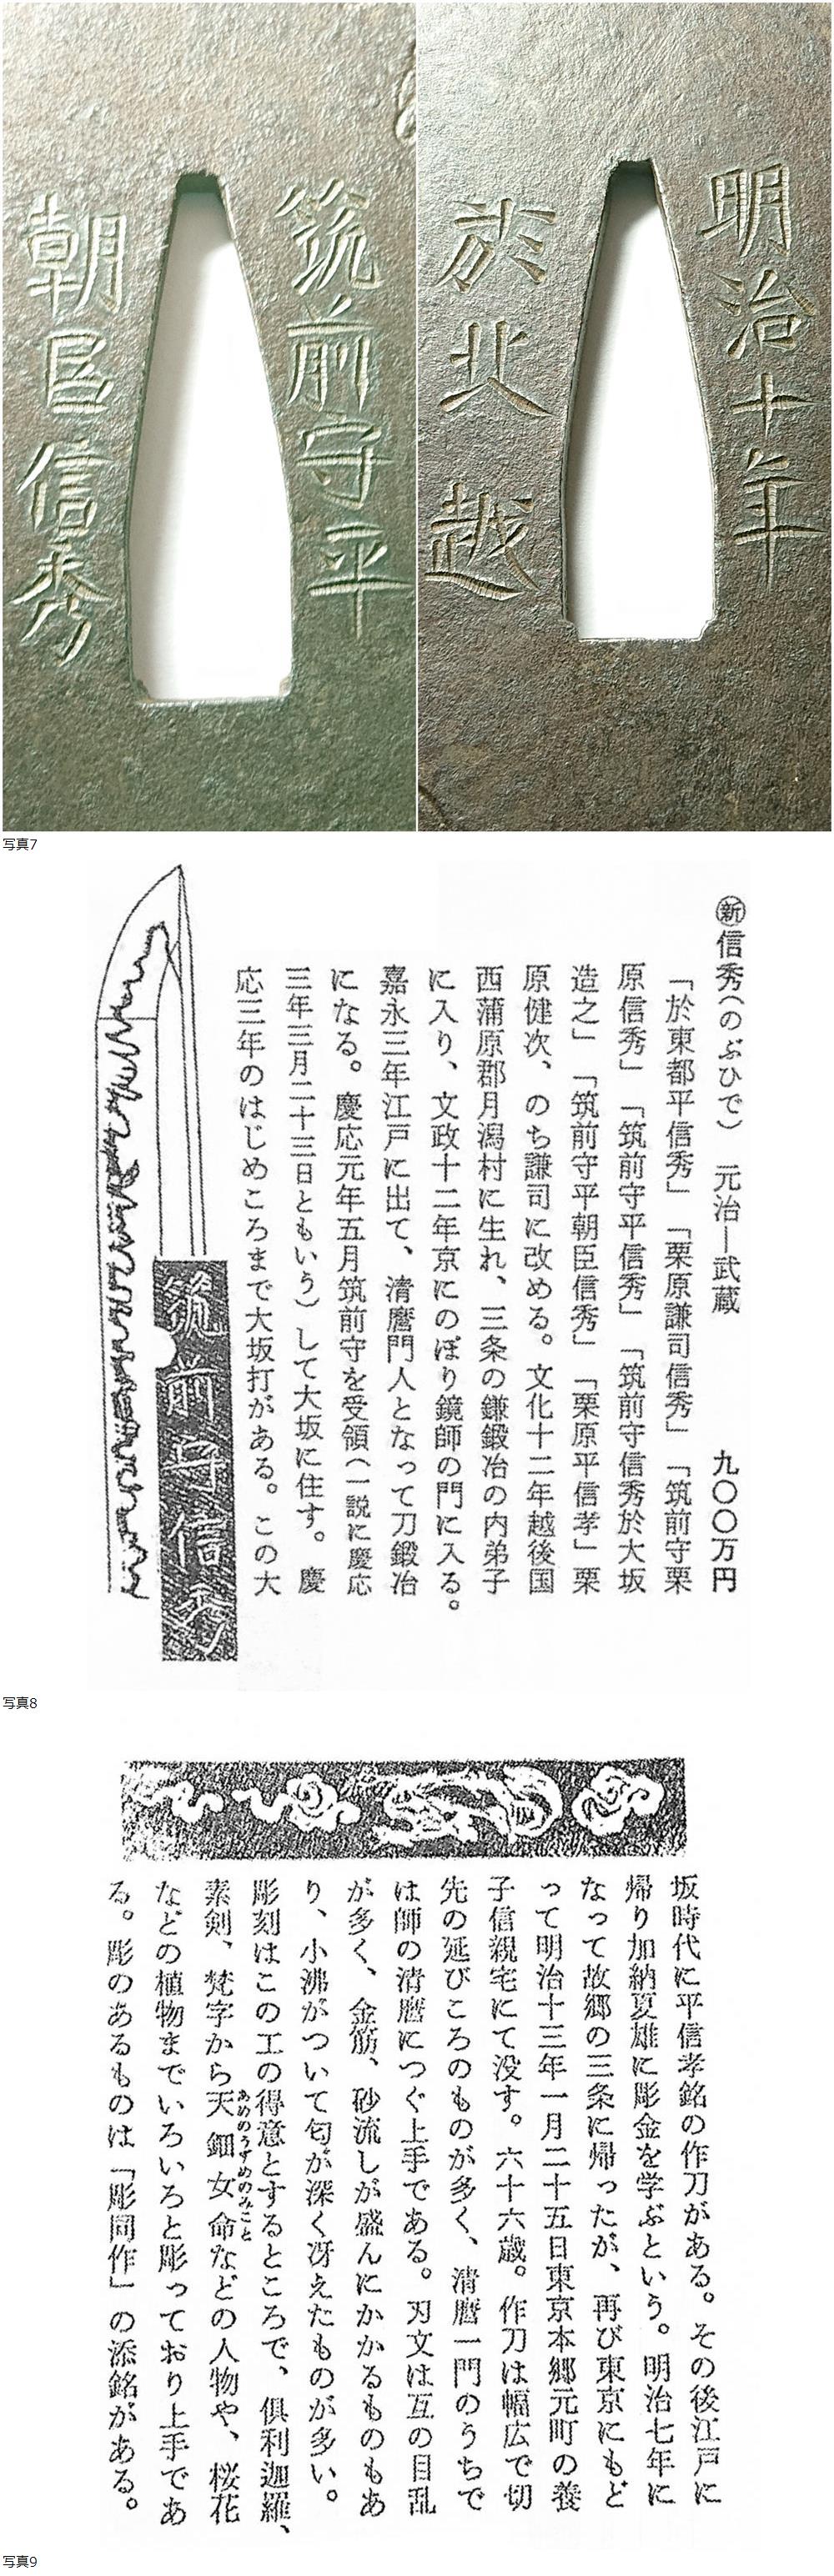 筑前守平
朝臣信秀
明治十年
於北越
写真7
㊟信秀(のぶひで) 元治―武蔵 九〇〇万円
「於東都平信秀」「栗原謙司信秀」「筑前守栗
原信秀」「筑前守平信秀」「筑前守信秀於大坂
造之」「筑前守平朝臣信秀」「栗原平信孝」栗
原健次、のち謙司に改める。文化十二年越後国
西蒲原郡月潟村に生れ、三条の鎌鍛冶の内弟子
に入り、文政十二年京にのぼり鏡師の門に入る。
嘉永三年江戸に出て、清麿門人となって刀鍛冶
になる。慶応元年五月筑前守を受領(一説に慶応
三年三月二十三日ともいう)して大坂に住す。慶
応三年のはじめころまで大坂打がある。この大
筑前守信秀
写真8
坂時代に平信孝銘の作刀がある。その後江戸に
帰り加納夏雄に彫金を学ぶという。明治七年に
なって故郷の三条に帰ったが、再び東京にもど
って明治十三年一月二十五日東京本郷元町の養
子信親宅にて没す。六十六歳。作刀は幅広で切
先の延びごころのものが多く、清麿一門のうちで
は師の清麿につぐ上手である。刃文は互の目乱
が多く、金筋、砂流しが盛んにかかるものもあ
り、小沸がついて匂が深く冴えたものが多い。
彫刻はこの工の得意とするところで、倶利迦羅、
素剣、梵字から天鈿女命などの人物や、桜花
あめのうずめのみこと
などの植物までいろいろと彫っており上手であ
る。彫のあるものは「彫同作」の添銘がある。
写真9